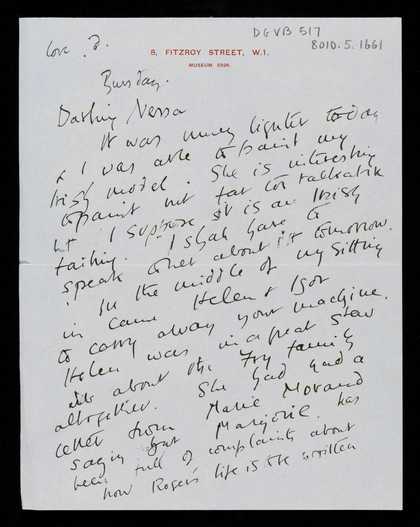 DGVB 517
8010.5.1661
Love D.
8, FITZROY STREET, W.1.
MUSEUM
Darling Nessa
It was much lighter today
& I was able to paint my
Irish model. She is interesting
to paint but far too talkative
but I suppose it is an Irish
failing. I shall have to
speak to her about it tomorrow.
In the middle of my sitting
in came Helen & Igor
to carry away your machine.
Helen was in a great stew
about the Fry family
altogether. She had had a
letter from Marie Mauron
saying that Marjorie has
been full of complaints about
how Roger's life is the written